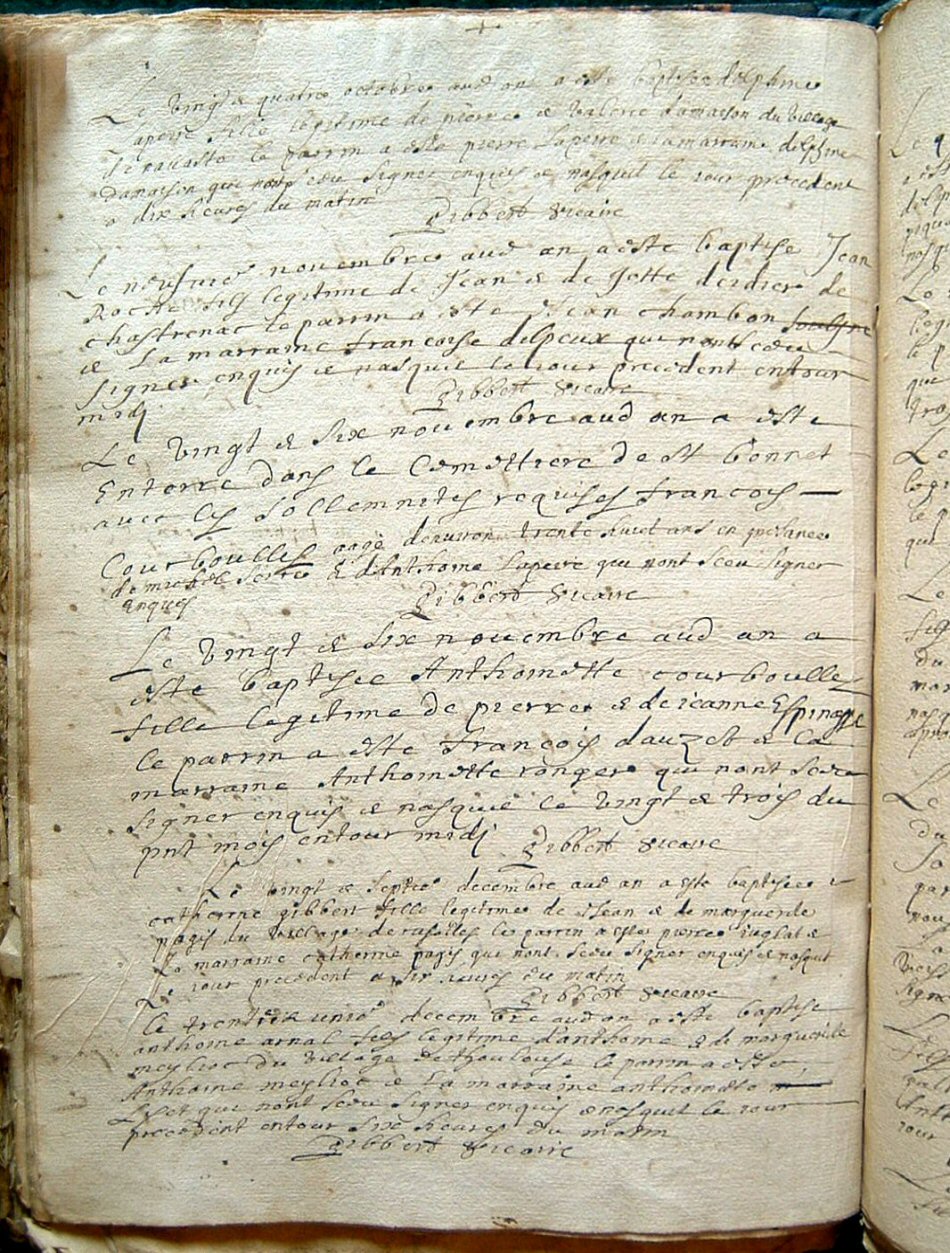 Le vingt & quatre octobre aud an a este baptisee delphine
lapeire fille legitime de pierre & valerie damaison du village
le parrin a este pierre Lapeire & la marraine delphine
damaison qui nont sceu signer enquis & nasquit le iour precedent
a dix heures du matin
Gibbert vicaire
Le neufvie novembre aud an a este baptise Jean
Roche fils legitime de Jean & de Jette deidier de
chastrenac le parrin a este Jean chambon
& La marraine francoise delpeux qui nont sceu
signer enquis & nasquit le iour precedent entour
midj
Gibbert vicaire
Le vingt & six novembre aud an a este
Enterre dans le Cemettiere de st bonnet
avec les sollemnites requises francois
Courboulles aagé denviron trente huict ans en presance
de michel & d'Anthoine Lapeire qui nont sceu signer
Enquis
Gibbert vicaire
Le vingt & six novembre aud an a
este baptisee Anthoinette courboulles
fille legitime de pierre & de ieanne Espinasse
le parrin a este francois dauzet & la
marraine Anthoinette ronger qui nont sceu
signer enquis & nasquit le vingt & trois du
pnt mois entour midj
Gibbert vicaire
Le vingt & septie decembre aud an a este baptisee
catherine gibbert fille legitime de Jean & de marguerite
pagis du village de le parrin a este pierre &
La marraine catherine pagis qui nont sceu signer enquis & nasquit
Le iour precedent a six heures du matin
Gibbert vicaire
le trente & unie decembre aud an a este baptise
anthoine arnal fils legitime d'anthoine & de marguerite
meylioc du village de thoulouse le parrin a este
Anthoine meylioc & La marraine anthoinette
qui nont sceu signer enquis & nasquit le iour
precedent entour six heures du matin
Gibbert vicaire